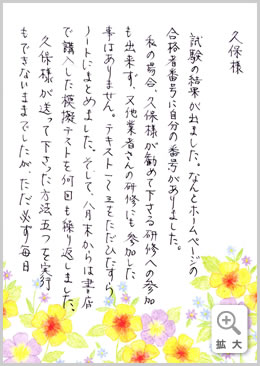 久保様
試験の結果が出ました。なんとホームページの
合格者番号に自分の番号がありました。
私の場合、久保様が勧めて下さる研修への参加
も出来ず、又他業者さんの研修にも参加した
事はありません。テキスト一て三をただひたすら
ノートにまとめました。そして、八月末からは書店
で購入した模擬テストを何回も繰り返しました。
久保様が送って下さった方法五つを実行
もできないままでしたが、ただ必ず毎日
拡大